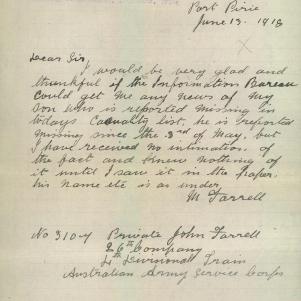 Port Pirie
June 13. 1918
Dear Sir
I would be very glad and
thankful if the Information Bureau
could get me any news of my
Son who is reported missing in
todays Casualty list, he is reported
missing since the 3rd of May, but
I have received no intimation, of
the fact and knew nothing of
it until I saw it in the paper.
his name etc is as under,
M Farrell
No 3104 Private John Farrell
26th Company
4th Divisional Train
Australian Army Service Corps